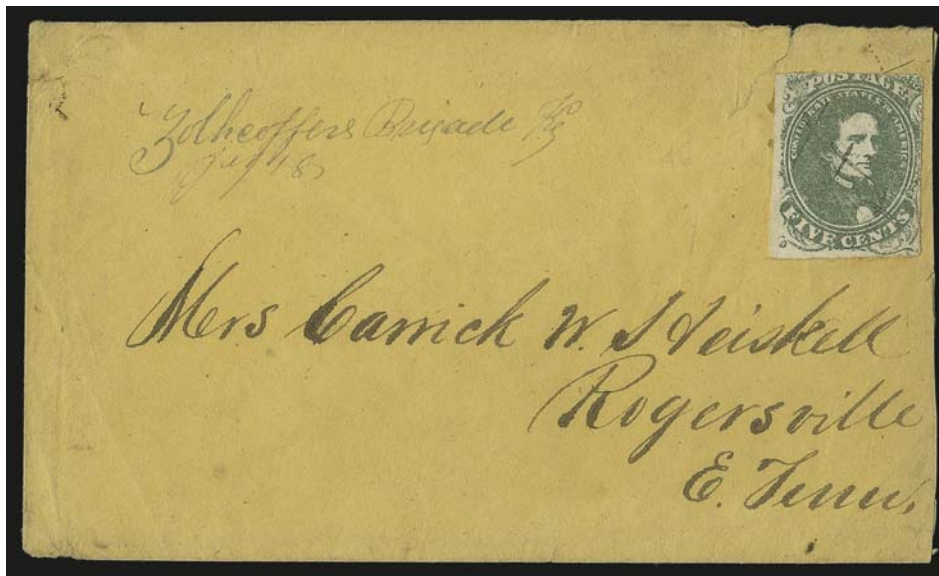 Zollicoffers Brigade Ky
Jay 18
POSTAGE
CONFEDERATE STATES OF AMERICA
FIVE CENTS
Mrs Carrick W. Heiskell
Rogersville
E. Tenn.